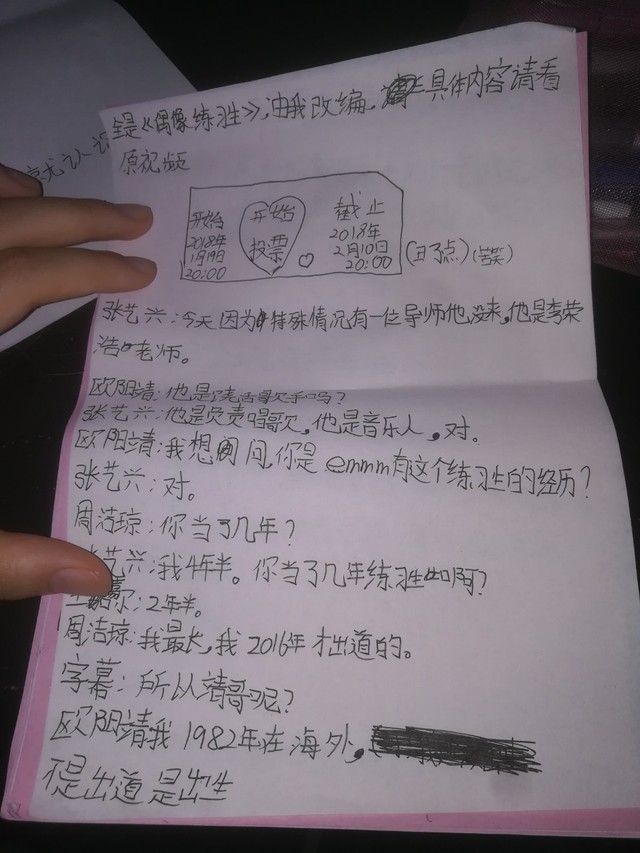 全是《偶像练习生》,由我改编,具体内容请看
原视频
开始
2018年
1月19日
20:00
开始
投票
截止
2018年
2月10日
20:00
(苦笑)
就认识
张艺兴:今天因为特殊情况有一位导师他没来,他是李荣
浩老师。
欧阳靖:他是饶舌歌手吗?
张艺兴:他是负责唱歌,他是音乐人,对。
欧阳靖:我想问问,你是emmm有这个练习生的经历?
张艺兴:对。
周洁琼:你当了几年?
艺兴:我4年半。你当了几年练习生呢啊?
嘉尔:2年半。
周洁琼:我最长,我2016年才出道的。
字幕:所以靖哥呢?
欧阳靖我1982年在海外,
不是出道 是出生